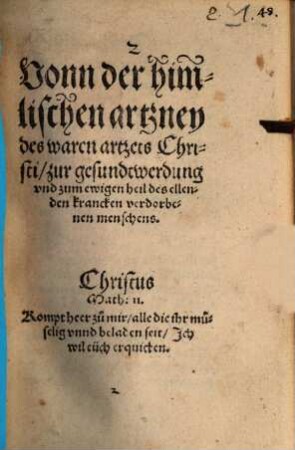 2. 1. 48.
2
Vonn der him̄-
lischen artzney
des waren artzets Chri-
sti/zur gesundtwerdung
vnd zum ewigen heil des ellen-
den krancken verdorbe-
nen menschens.
Christus
Math: 11.
Kompt heer zů mir/alle die ihr mü-
selig vnnd beladen seit/Ich
wil eüch erquicken.
2